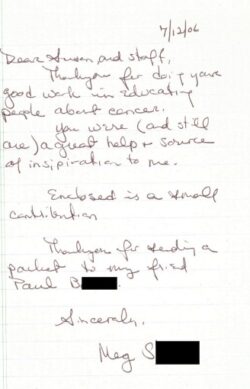 7/12/06
Dear Susan and staff,
Thankyou for doing your
good work in educating
people about cancer.
You were (and still
are) a great help & source
of insipiration to me.
Enclosed is a small
contribution
Thankyou for sending a
packet to my fried
Paul B
Sincerely,
Meg S